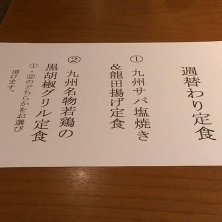 週替わり定食
① 九州サバ塩焼き
&竜田揚げ定食
② 九州名物若鶏の
黒胡椒グリル定食
①・②のどちらかをお選び
頂けます。